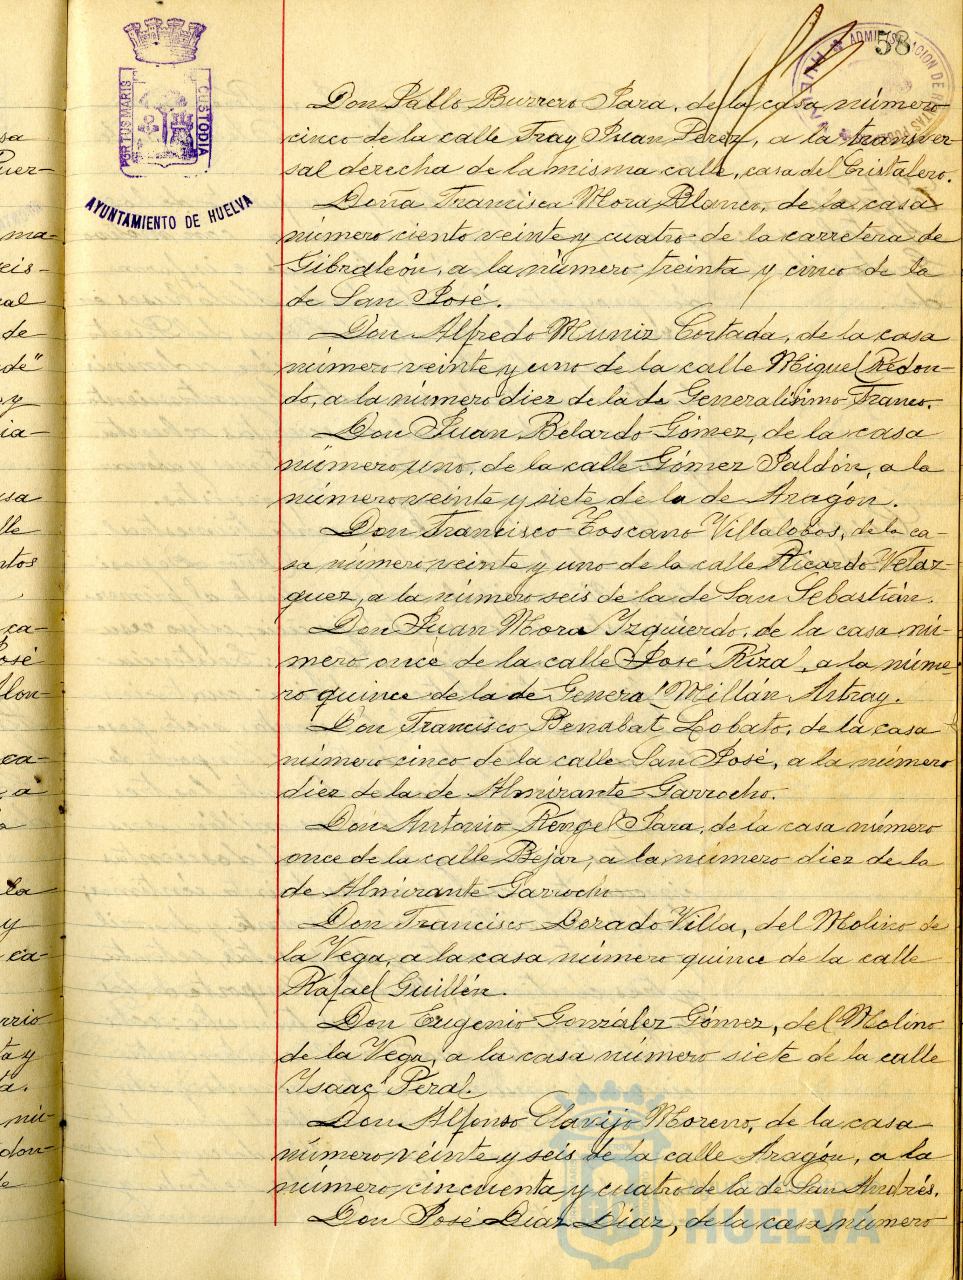 58
PORTUS MARIS
CUSTODIA
AYUNTAMIENTO DE HUELVA
Don Pablo Burrero Jara, de la casa número
cinco de la calle Fray Juan Perez, a la transver
sal derecha de la misma calle, casa del Cristalero.
Doña Francisca Mora Blanco, de la casa
número ciento veinte y cuatro de la carretera de
Gibraleón, a la número treinta y cinco de la
de San José.
Don Alfredo Muniz Cortada, de la casa
número veinte y uno de la calle Miguel Redon-
do, a la número diez de la de Generalísimo Franco.
Don Juan Belardo Gómez, de la casa
número uno, de la calle Gómez Jaldón, a la
número veinte y siete de la de Aragón.
Don Francisco Toscano Villalobos, de la ca-
sa número veinte y uno de la calle Ricardo Velaz-
quez, a la número seis de la de San Sebastián.
Don Juan Mora Izquierdo, de la casa nú-
mero once de la calle José Rizal, a la núme-
ro quince de la de General Millán Astray.
Don Francisco Benabat Lobato, de la casa
número cinco de la calle San José, a la número
diez de la de Almirante Garrocho.
Don Antonio Rengel Jara, de la casa número
once de la calle Bejar, a la número diez de la
de Almirante Garrocho
Don Francisco Dorado Villa, del Molino de
la Vega, a la casa número quince de la calle
Rafael Guillén.
Don Eugenio González Gómez, del Molino
de la Vega, a la casa número siete de la calle
Isaac Peral.
Don Alfonso Clavijo Moreno, de la casa
número veinte y seis de la calle Aragón, a la
número cincuenta y cuatro de la de San Andrés.
Don José Díaz Díaz, de la casa número
HUELVA